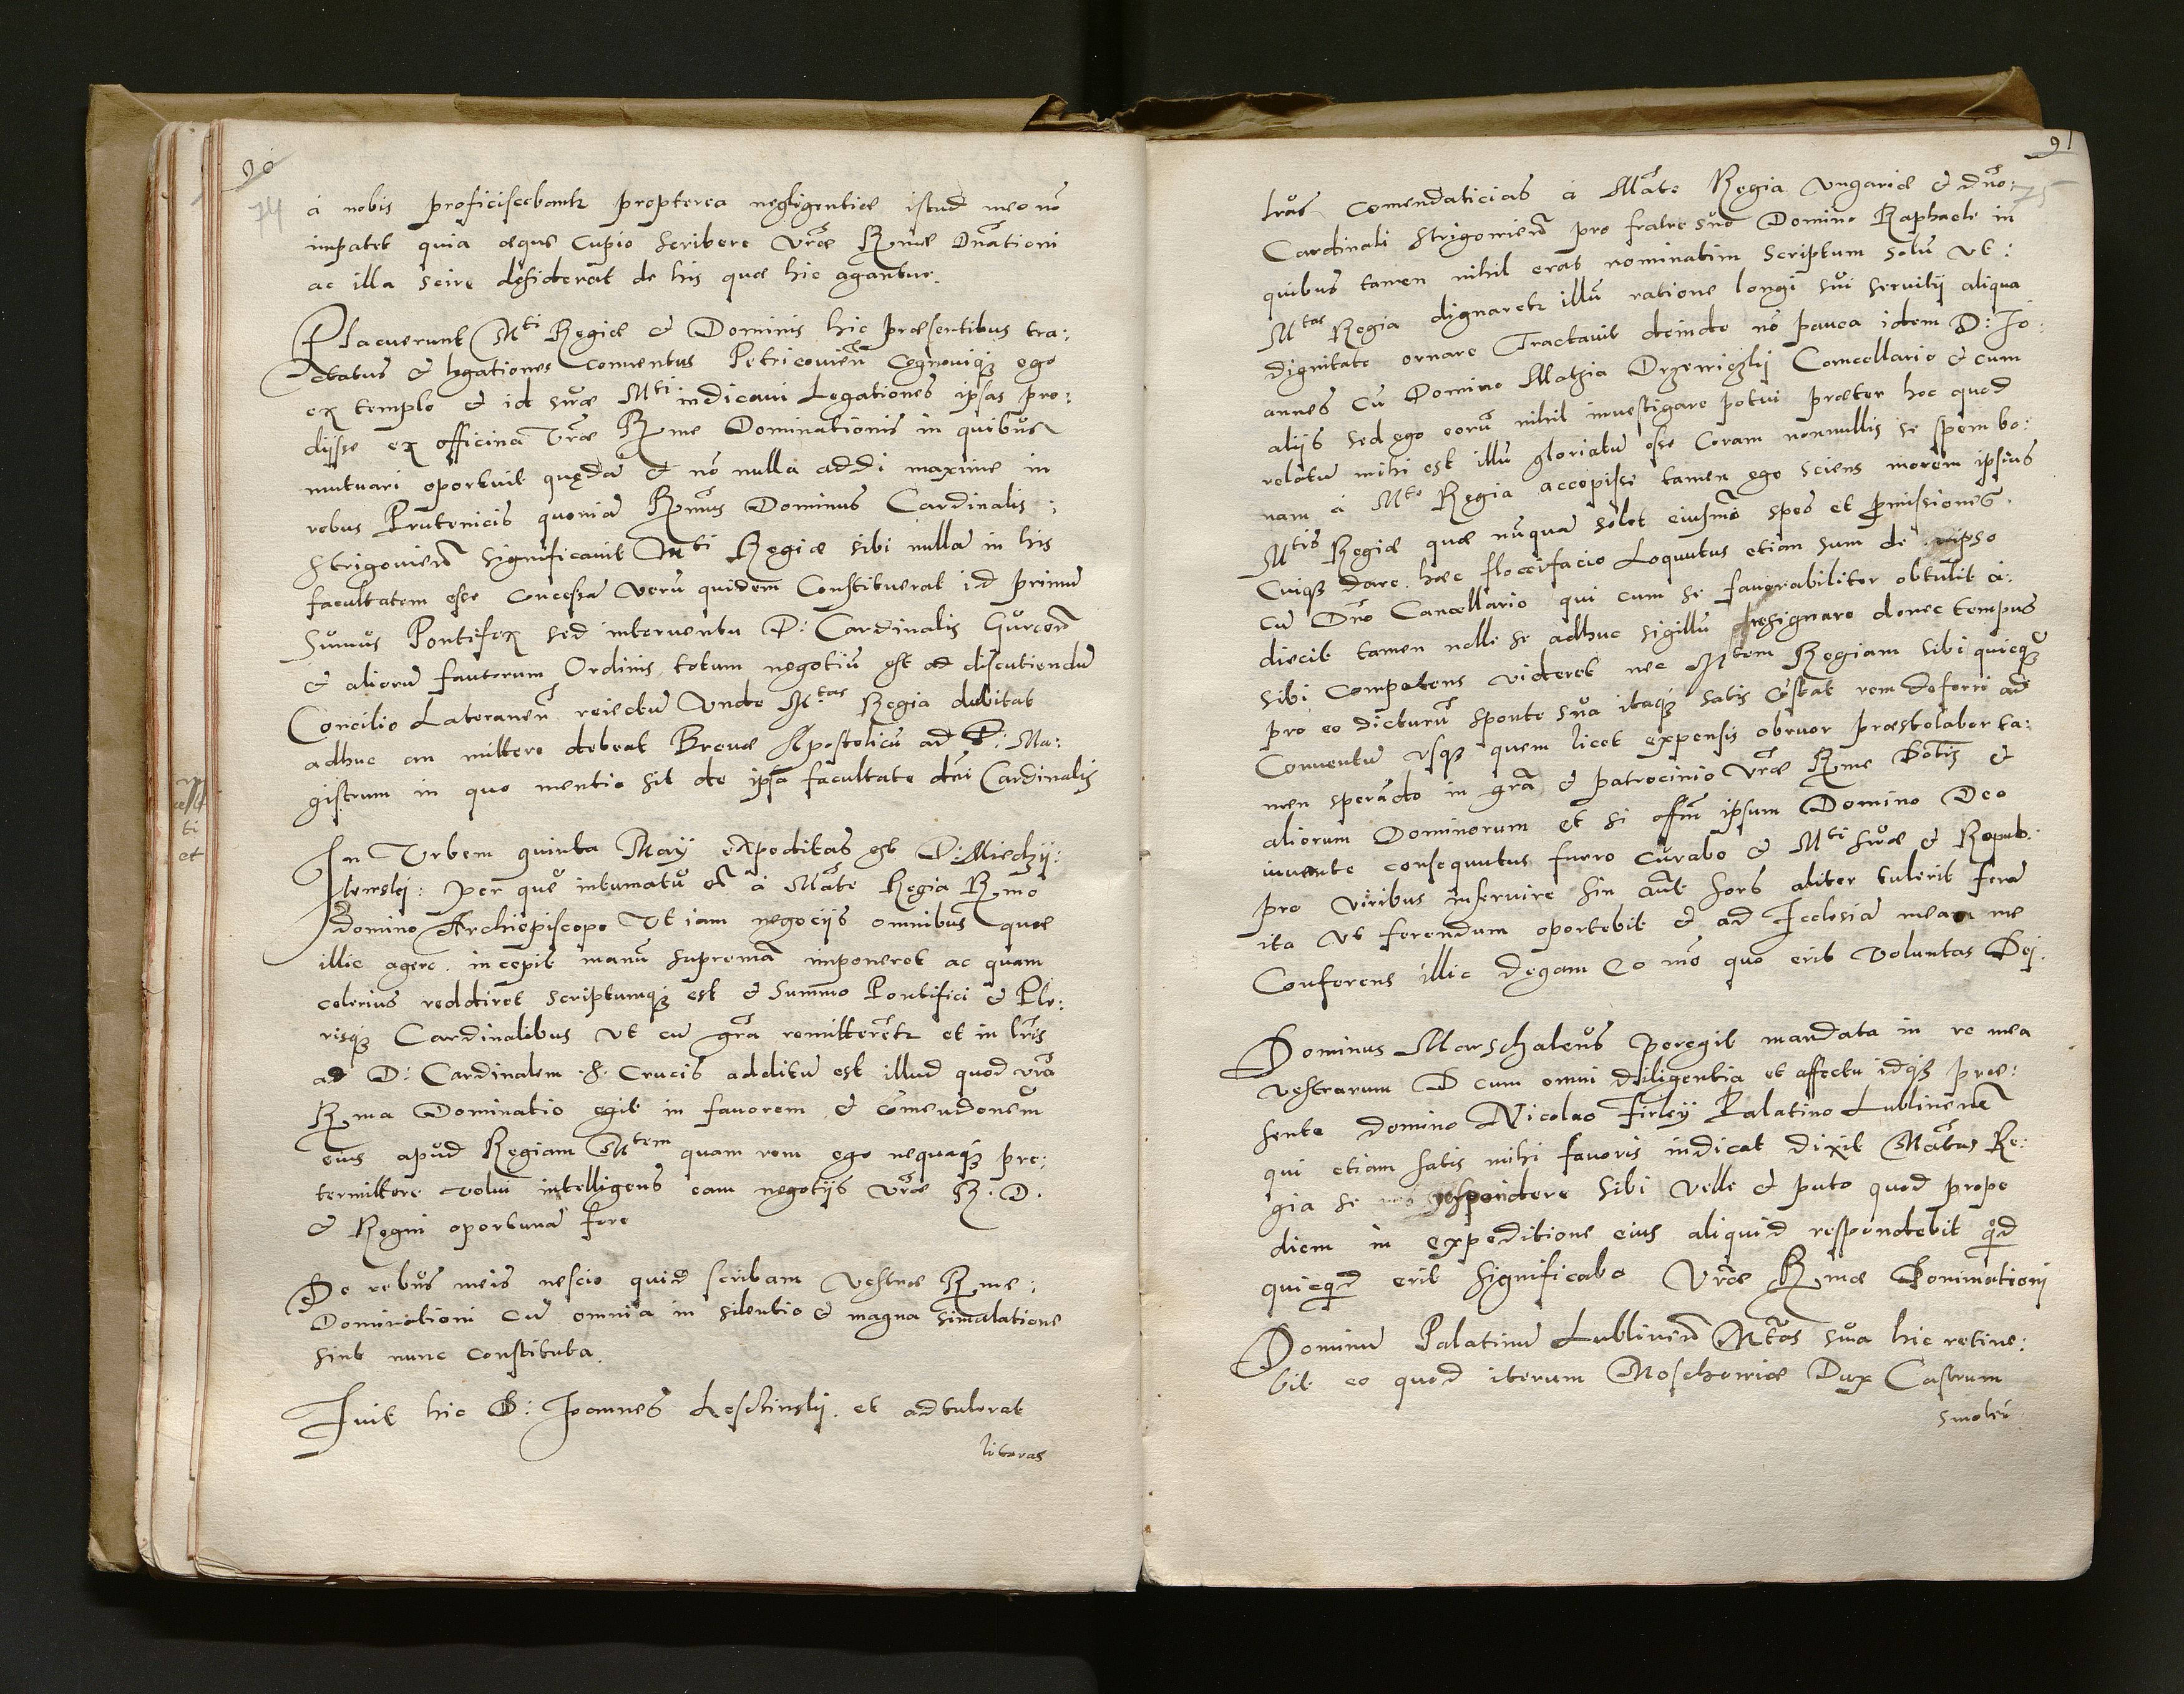 90
74
à nobis proficiscebantr propterea negligentiæ istud meo nō
impatet quia æque Cupio scribere Vr̃æ R.me Dnãtioni
ac illa scire desiderat de his quæ hic agantur.
Placuerunt Mti Regiæ & Dominis hic præsentibus tra:
ctatus & legationes conventus Petricouieñ Cognouiqȝ ego
ex templo & id suæ Mti indicaui Legationes ipsas pro:
diisse ex officina Vr̃æ R.me Dominationis in quibus
mutuari oportuit quędā & nō nulla addi maxime in
rebus Prutenicis quoniā R.mus Dominus Cardinalis :
Strigonieñ significauit Mti Regiæ sibi nullā in his
facultatem esse concessā verū quidem Constituerat id primū
Sūmus Pontifex sed interuentu D: Cardinalis Gurceñ
& aliorū fautorum Ordinis totum negotiū est ad discutiendū
Concilio Lateraneñ reiectū Vnde Mtas Regia dubitat
adhuc an mittere debeat Breuæ Apostolicū ad D: Ma:
gistrum in quo mentio sit de ipsa facultate dñi Cardinalis
In Vrbem quinta Maÿ expeditas est D: Miedzij:
leuslij: per quē intumatū est à Mãte Regia R.mo
domino Archiepiscopo Vt iam negociis omnibus quæ
illic agere incepit manū supremā imponeret ac quam
celerius rediret scriptumqȝ est & Summo Pontifici & Ple:
risqȝ Cardinalibus Vt cū gr̃a remitterētr et in lr̃is
ad D: Cardinalem .S. Crucis additū est illud quod vr̃a
R.ma Dominatio egit in fauorem & cōmendonem̃
eius apud Regiam Mtem quam rem ego nequaqȝ pre:
termittere volui intelligens eam negotijs vr̃æ R. D.
& Regni oportunā fore
De rebus meis nescio quid scribam Vestræ R.me:
Dominationi Cū omnia in silentio & magna simulatione
sint nunc constituta.
Fuit hic D: Joannes Leschinslij. et adtulerat
literas
91
75
lr̃as comendaticias à Mãte Regia Vngariæ & dño:
Cardinali Strigonieñ pro fratre suo Domino Raphaele in
quibus tamen nihil erat nominatim scriptum solū Vt:
Mtas Regia dignaretr illū ratione longi sui seruitij aliqua
dignitate ornare Tractauit deinde nō pauca idem D: Jo:
annes Cū Domino Mathia Drzewiczlij Cancellario & cum
alijs sed ego eorū nihil inuestigare potui præter hoc quod
relatū mihi est illū gloriatū esse Coram nonnullis se spem bo:
nam à Mte Regia accepisse tamen ego sciens morem ipsius
Mtis Regiæ quæ nūquā solet eiusmõ spes et ꝓmissiones
Cuiqȝ dare hæc floccifacio Loquutus etiam sum de ipso
cū Dño Cancellario qui cum se fauorabiliter obtulit a:
diecit tamen nolle se adhuc sigillū resignare donec tempus
sibi Competens videret nec Mtem Regiam sibi quicqȝ
pro eo dicturū sponte sua itaqȝ satis cōstat rem deferri ad
Conuentū vsqȝ quem licet expensis obruor præstolabor ta:
men sperādo in gr̃a & patrocinio vr̃æ R.me Dotis &
aliorum Dominorum et si offm̃ ipsum Domino Deo
iuuante consequutus fuero curabo & Mti suæ & Repub.
pro viribus inseruire sin aūt sors aliter tulerit ferā
ita Vt ferendum oportebit & ad Ecclesiā meam me
Conferens illic degam Eo mõ quo erit voluntas Dej.
Dominus Marschaleus peregit mandata in re mea
vestrarum D cum omni diligentia et affectu idqȝ præ:
sente domino Nicolao Firleÿ Palatino Lublineñ
qui etiam satis mihi fauoris indicat dixit Mãtas Re:
gia se respondere sibi velle & puto quod prope
diem in expeditione eius aliquid respondebit qd
quicqd erit significabo Vr̃æ R.mæ Dominationi
Dominū Palatinū Lublinieñ Mtas sua hic retine:
bit eo quod iterum Moschouiæ Dux Castrum
Smolen